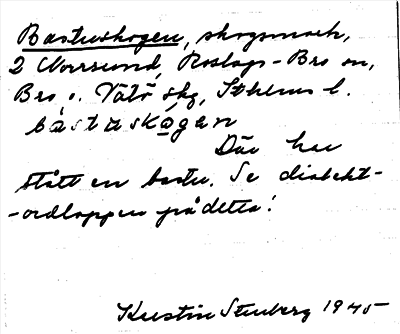 Bastuskogen, skogsmark,
2 Norrsund, Roslags-Bro sn,
Bro o. Vätö skg, Sthlms l.
bástuskógen
Där har
stått en bastu. Se dialekt-
-ordlappen på detta!
Kerstin Stenberg 1945